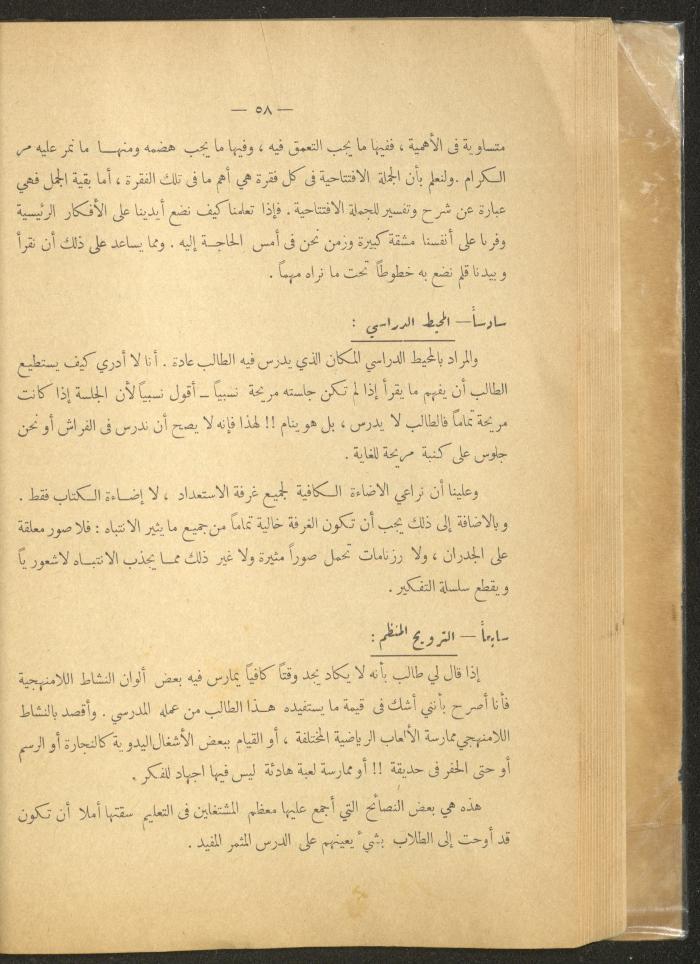 — ٥٨ —
متساوية فى الأهمية ، ففيها ما يجب التعمق فيه ، وفيها ما يجب هضمه ومنهـا ما نمر عليه مر
الـكرام . ولنعلم بأن الجملة الافتتاحية فى كل فقرة هي أهم ما فى تلك الفقرة ، أما بقية الجمل فهي
عبارة عن شرح وتفسير للجملة الافتتاحية . فإذا تعلمنا كيف نضع أيدينا على الأفكار الرئيسية
وفرنا على أنفسنا مشقة كبيرة وزمن نحن فى أمس الحاجـة إليه . ومما يساعد على ذلك أن نقرأ
وبيدنا قلم نضع به خطوطاً تحت ما نراه مهماً .
سادساً — المحيط الدراسي :
والمراد بالمحيط الدراسي المكان الذي يدرس فيه الطالب عادة . أنا لا أدري كيف يستطيع
الطالب أن يفهم ما يقرأ إذا لم تكن جلسته مريحة نسبياً ــ أقول نسبياً لأن الجلسة إذا كانت
مريحة تماماً فالطالب لا يدرس ، بل هو ينام !! لهذا فإنه لا يصح أن ندرس فى الفراش أو نحن
جلوس على كنبة مريحة للغاية .
وعلينا أن نراعي الاضاءة الـكافية لجميع غرفة الاستعداد ، لا إضـاءة الـكتاب فقط .
وبالاضافة إلى ذلك يجب أن تكون الغرفة خالية تماماً من جميع ما يثير الانتباه : فلا صور معلقة
على الجدران ، ولا رزنامات تحمل صوراً مثيرة ولا غير ذلك ممـا يجذب الانتبـاه لاشعورياً
ويقطع سلسلة التفـكير .
سابعاً — الترويح المنظم :
إذا قال لي طالب بأنه لا يكاد يجد وقتاً كافياً يمارس فيه بعض ألوان النشاط اللامنهجية
فأنا أصرح بأنني أشك فى قيمة ما يستفيده هـذا الطالب من عمله المدرسي . وأقصد بالنشاط
اللامنهجي ممارسة الألعاب الرياضية المختلفة ، أو القيام ببعض الأشغال اليدوية كالنجارة أو الرسم
أو حتى الحفر فى حديقة !! أو ممارسة لعبة هادئة ليس فيها اجهاد للفكر .
هذه هي بعض النصائح التي أجمع عليها معظم المشتغلين فى التعليم سقتها أملا أن تـكون
قد أوحت إلى الطلاب بشيء يعينهم على الدرس المثمر المفيد .